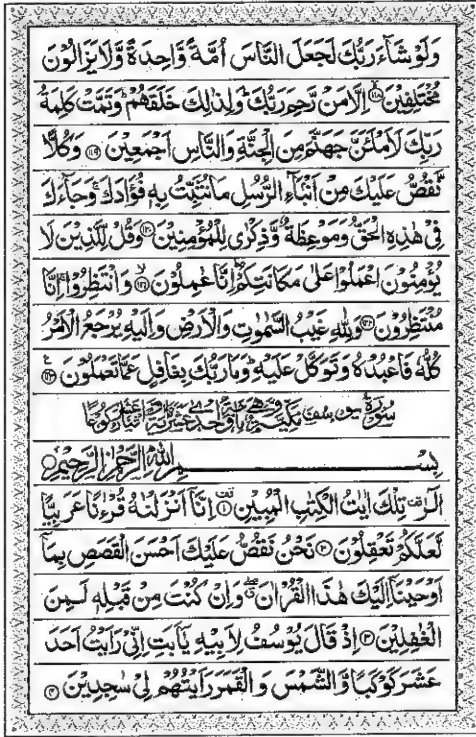 وَلَوْ شَآءَ رَبُّكَ لَجَعَلَ النَّاسَ اُمَّةً وَّاحِدَةً وَّلَا يَزَالُوْنَ
مُخْتَلِفِيْنَ ۙ﴿۱۱۸﴾ اِلَّا مَنْ رَّحِمَ رَبُّكَ ؕ وَلِذٰلِكَ خَلَقَهُمْ ؕ وَتَمَّتْ كَلِمَةُ
رَبِّكَ لَاَمْلَئَنَّ جَهَنَّمَ مِنَ الْجِنَّةِ وَالنَّاسِ اَجْمَعِيْنَ ﴿۱۱۹﴾ وَكُلًّا
نَّقُصُّ عَلَيْكَ مِنْ اَنْۢبَآءِ الرُّسُلِ مَا نُثَبِّتُ بِهٖ فُؤَادَكَ ۚ وَجَآءَكَ
فِىْ هٰذِهِ الْحَقُّ وَمَوْعِظَةٌ وَّذِكْرٰى لِلْمُؤْمِنِيْنَ ﴿۱۲۰﴾ وَقُلْ لِّلَّذِيْنَ لَا
يُؤْمِنُوْنَ اعْمَلُوْا عَلٰى مَكَانَتِكُمْ ؕ اِنَّا عٰمِلُوْنَ ۙ﴿۱۲۱﴾ وَانْتَظِرُوْا ۚ اِنَّا
مُنْتَظِرُوْنَ ﴿۱۲۲﴾ وَلِلّٰهِ غَيْبُ السَّمٰوٰتِ وَالْاَرْضِ وَاِلَيْهِ يُرْجَعُ الْاَمْرُ
كُلُّهٗ فَاعْبُدْهُ وَتَوَكَّلْ عَلَيْهِ ؕ وَمَا رَبُّكَ بِغَافِلٍ عَمَّا تَعْمَلُوْنَ ﴿۱۲۳﴾
سُوْرَةُ يُوْسُفَ مَكِّيَّةٌ وَّهِىَ
بِسْمِ اللّٰهِ الرَّحْمٰنِ الرَّحِيْمِ
الٓرٰ ۟ تِلْكَ اٰيٰتُ الْكِتٰبِ الْمُبِيْنِ ﴿۱﴾ اِنَّاۤ اَنْزَلْنٰهُ قُرْءٰنًا عَرَبِيًّا
لَّعَلَّكُمْ تَعْقِلُوْنَ ﴿۲﴾ نَحْنُ نَقُصُّ عَلَيْكَ اَحْسَنَ الْقَصَصِ بِمَاۤ
اَوْحَيْنَاۤ اِلَيْكَ هٰذَا الْقُرْاٰنَ ۖ وَاِنْ كُنْتَ مِنْ قَبْلِهٖ لَمِنَ
الْغٰفِلِيْنَ ﴿۳﴾ اِذْ قَالَ يُوْسُفُ لِاَبِيْهِ يٰۤاَبَتِ اِنِّىْ رَاَيْتُ اَحَدَ
عَشَرَ كَوْكَبًا وَّالشَّمْسَ وَالْقَمَرَ رَاَيْتُهُمْ لِىْ سٰجِدِيْنَ ﴿۴﴾